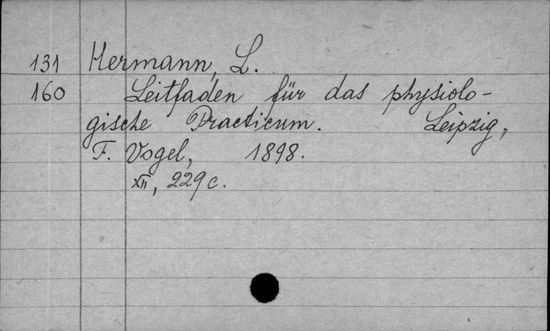 131 Hermann, L.
160 Leitfaden für das physiolo-
gische Practicum. Leipzig,
F. Vogel, 1898.
XII, 229 c.